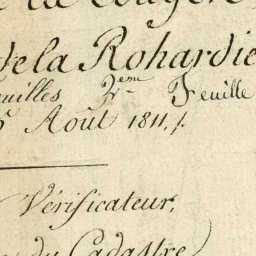 de la Rohardie
euilles 2.eme Feuille
Août 1811./.
Vérificateur,
du Cadastre